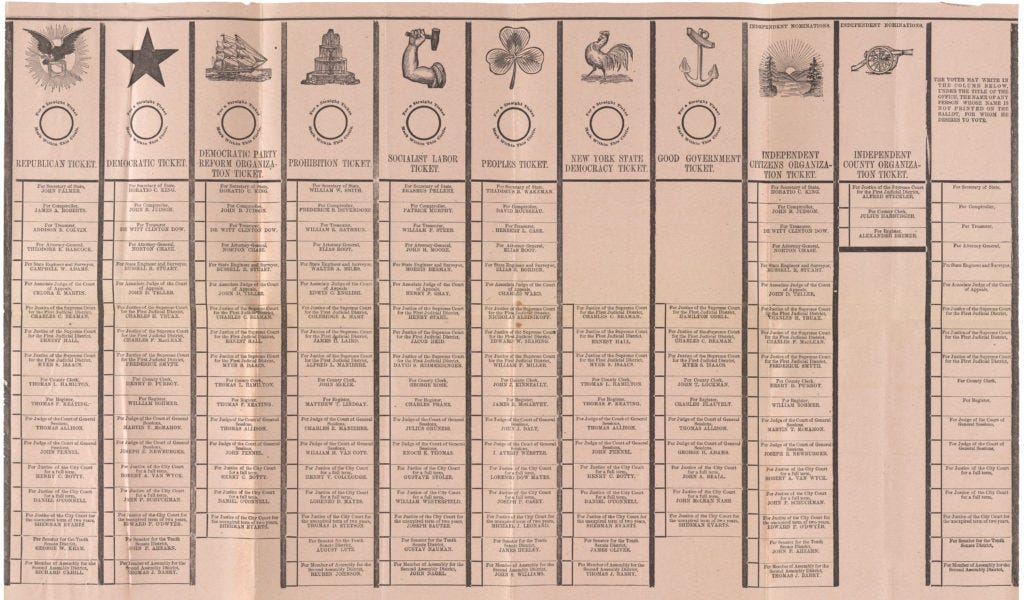 REPUBLICAN TICKET.
For a Straight Ticket
Mark Within This
For Secretary of State,
JOHN PALMER.
For Comptroller,
JAMES A. ROBERTS.
For Treasurer,
ADDISON B. COLVIN.
For Attorney-General,
THEODORE E. HANCOCK.
For State Engineer and Surveyor,
CAMPBELL W. ADAMS.
For Associate Judge of the Court
of Appeals,
CELORA E. MARTIN.
For Justice of the Supreme Court
for the First Judicial District,
CHARLES C. BEAMAN.
For Justice of the Supreme Court
for the First Judicial District,
ERNEST HALL.
For Justice of the Supreme Court
for the First Judicial District,
MYER S. ISAACS.
For County Clerk,
THOMAS L. HAMILTON.
For Register,
THOMAS F. KEATING.
For Judge of the Court of General
Sessions,
THOMAS ALLISON.
For Judge of the Court of General
Sessions,
JOHN FENNEL.
For Justice of the City Court
for a full term,
HENRY C. BOTTY.
For Justice of the City Court
for a full term,
For Justice of the City Court for
the unexpired term of two years,
SHERMAN EVARTS.
For Senator for the Tenth
Senate District,
GEORGE W. KHAN.
For Member of Assembly for the
Second Assembly District,
RICHARD CAHILL.
DEMOCRATIC TICKET.
For a Straight Ticket
Mark Within This
For Secretary of State,
HORATIO C. KING.
For Comptroller,
JOHN B. JUDSON.
For Treasurer,
DE WITT CLINTON DOW.
For Attorney-General,
NORTON CHASE.
For State Engineer and Surveyor,
RUSSELL R. STUART.
For Associate Judge of the Court
of Appeals,
JOHN D. TELLER.
For Justice of the Supreme Court
for the First Judicial District,
CHARLES H. TRUAX.
For Justice of the Supreme Court
for the First Judicial District,
CHARLES F. MacLEAN.
For Justice of the Supreme Court
for the First Judicial District,
FREDERICK SMYTH.
For County Clerk,
HENRY D. PURROY.
For Register,
WILLIAM SOHMER.
For Judge of the Court of General
Sessions,
MARTIN T. McMAHON.
For Judge of the Court of General
Sessions,
JOSEPH E. NEWBURGER.
For Justice of the City Court
for a full term,
ROBERT A. VAN WYCK.
For Justice of the City Court
for a full term,
JOHN P. SCHUCHMAN.
For Justice of the City Court for
the unexpired term of two years,
EDWARD F. O'DWYER.
For Senator for the Tenth
Senate District,
JOHN F. AHEARN.
For Member of Assembly for the
Second Assembly District,
THOMAS J. BARRY.
DEMOCRATIC PARTY
REFORM ORGANIZA-
TION TICKET.
For a Straight Ticket
Mark Within This
For Secretary of State,
HORATIO C. KING.
For Comptroller,
JOHN B. JUDSON.
For Treasurer,
DE WITT CLINTON DOW.
For Attorney-General,
NORTON CHASE.
For State Engineer and Surveyor,
RUSSELL R. STUART.
For Associate Judge of the Court
of Appeals,
JOHN D. TELLER.
For Justice of the Supreme Court
for the First Judicial District,
CHARLES C. BEAMAN.
For Justice of the Supreme Court
for the First Judicial District,
ERNEST HALL.
For Justice of the Supreme Court
for the First Judicial District,
MYER S. ISAACS.
For County Clerk,
THOMAS L. HAMILTON.
For Register,
THOMAS F. KEATING.
For Judge of the Court of General
Sessions,
THOMAS ALLISON.
For Judge of the Court of General
Sessions,
JOHN FENNEL.
For Justice of the City Court
for a full term,
HENRY C. BOTTY.
For Justice of the City Court
for a full term,
For Justice of the City Court for
the unexpired term of two years,
SHERMAN EVARTS.
PROHIBITION TICKET.
For a Straight Ticket
Mark Within This
For Secretary of State,
WILLIAM W. SMITH.
For Comptroller,
For Treasurer,
WILLIAM R. RATHBUN.
For Attorney-General,
ELIAS ROOT.
For State Engineer and Surveyor,
WALTER A. MILES.
For Associate Judge of the Court
of Appeals,
EDWIN C. ENGLISH.
For Justice of the Supreme Court
for the First Judicial District,
For Justice of the Supreme Court
for the First Judicial District,
JAMES H. LAIRD.
For Justice of the Supreme Court
for the First Judicial District,
ALFRED L. MANIERRE.
For County Clerk,
JOHN McKEE.
For Register,
MATTHEW T. LINDSAY.
For Judge of the Court of General
Sessions,
CHARLES E. MANIERRE.
For Judge of the Court of General
Sessions,
WILLIAM H. VAN COTT.
For Justice of the City Court
for a full term,
HENRY V. COLCLOUGH.
For Justice of the City Court
for a full term,
For Justice of the City Court for
the unexpired term of two years,
THOMAS D. STETSON.
For Senator for the Tenth
Senate District,
AUGUST LUTZ.
For Member of Assembly for the
Second Assembly District,
REUBEN JOHNSON.
SOCIALIST LABOR
TICKET.
For a Straight Ticket
Mark Within This
For Secretary of State,
ERASMUS PELLENZ.
For Comptroller,
PATRICK MURPHY.
For Treasurer,
WILLIAM F. STEER.
For Attorney-General,
JOHN H. MOORE.
For State Engineer and Surveyor,
MORRIS BERMAN.
For Associate Judge of the Court
of Appeals,
HENRY P. GRAY.
For Justice of the Supreme Court
for the First Judicial District,
HENRY STAHL.
For Justice of the Supreme Court
for the First Judicial District,
JACOB REID.
For Justice of the Supreme Court
for the First Judicial District,
For County Clerk,
GEORGE ROSE.
For Register,
CHARLES FRANZ.
For Judge of the Court of General
Sessions,
JULIUS GRUNSIG.
For Judge of the Court of General
Sessions,
ENOCH K. THOMAS.
For Justice of the City Court
for a full term,
GUSTAVE STOLZE.
For Justice of the City Court
for a full term,
WILLIAM WINTERFELD.
For Justice of the City Court for
the unexpired term of two years,
JOSEPH SAUTER.
For Senator for the Tenth
Senate District,
GUSTAV NAUMAN.
For Member of Assembly for the
Second Assembly District,
JOHN NAGEL.
PEOPLES TICKET.
For a Straight Ticket
Mark Within This
For Secretary of State,
THADDEUS B. WAKEMAN.
For Comptroller,
DAVID ROUSSEAU.
For Treasurer,
HERBERT L. CASE.
For Attorney-General,
ELIAS ROOT.
For State Engineer and Surveyor,
ELIAS B. BORDEN.
For Associate Judge of the Court
of Appeals,
CHARLES WARD.
For Justice of the Supreme Court
for the First Judicial District,
NICHOLAS ALEINIKOFF.
For Justice of the Supreme Court
for the First Judicial District,
For Justice of the Supreme Court
for the First Judicial District,
WILLIAM F. MILLER.
For County Clerk,
JOHN J. KENNEALLY.
For Register,
For Judge of the Court of General
Sessions,
JOHN A. BOLT.
For Judge of the Court of General
Sessions,
J. AVERY WEBSTER.
For Justice of the City Court
for a full term,
LORENZO DOW MAYES.
For Justice of the City Court
for a full term,
For Justice of the City Court for
the unexpired term of two years,
MICHAEL J. LEONARD.
For Senator for the Tenth
Senate District,
JAMES HURLEY.
For Member of Assembly for the
Second Assembly District,
JOHN S. WILLIAMS.
NEW YORK STATE
DEMOCRACY TICKET.
For a Straight Ticket
Mark Within This
For Justice of the Supreme Court
for the First Judicial District,
CHARLES C. BEAMAN.
For Justice of the Supreme Court
for the First Judicial District,
ERNEST HALL.
For Justice of the Supreme Court
for the First Judicial District,
MYER S. ISAACS.
For County Clerk,
THOMAS L. HAMILTON.
For Register,
THOMAS F. KEATING.
For Judge of the Court of General
Sessions,
THOMAS ALLISON.
For Judge of the Court of General
Sessions,
JOHN FENNEL.
For Justice of the City Court
for a full term,
HENRY C. BOTTY.
For Justice of the City Court
for a full term,
For Justice of the City Court for
the unexpired term of two years,
SHERMAN EVARTS.
For Senator for the Tenth
Senate District,
JAMES OLIVER.
For Member of Assembly for the
Second Assembly District,
THOMAS J. BARRY.
GOOD GOVERNMENT
TICKET.
For a Straight Ticket
Mark Within This
For Justice of the Supreme Court
for the First Judicial District,
HAMILTON ODELL.
For Justice of the Supreme Court
for the First Judicial District,
CHARLES C. BEAMAN.
For Justice of the Supreme Court
for the First Judicial District,
MYER S. ISAACS.
For County Clerk,
JOHN T. LOCKMAN.
For Register,
CHARLES BLAUVELT.
For Judge of the Court of General
Sessions,
THOMAS ALLISON.
For Judge of the Court of General
Sessions,
GEORGE H. ADAMS.
For Justice of the City Court
for a full term,
JOHN A. BEALL.
For Justice of the City Court
for a full term,
JOHN McCREW NASH.
For Justice of the City Court for
the unexpired term of two years,
SHERMAN EVARTS.
INDEPENDENT NOMINATIONS.
INDEPENDENT
CITIZENS ORGANIZA-
TION TICKET.
For Secretary of State,
HORATIO C. KING.
For Comptroller,
JOHN B. JUDSON.
For Treasurer,
DE WITT CLINTON DOW.
For Attorney-General,
NORTON CHASE.
For State Engineer and Surveyor,
RUSSELL R. STUART.
For Associate Judge of the Court
of Appeals,
JOHN D. TELLER.
For Justice of the Supreme Court
for the First Judicial District,
CHARLES H. TRUAX.
For Justice of the Supreme Court
for the First Judicial District,
CHARLES F. McLEAN.
For Justice of the Supreme Court
for the First Judicial District,
FREDERICK SMYTH.
For County Clerk,
HENRY D. PURROY.
For Register,
WILLIAM SOHMER.
For Judge of the Court of General
Sessions,
MARTIN T. McMAHON.
For Judge of the Court of General
Sessions,
JOSEPH E. NEWBURGER.
For Justice of the City Court
for a full term,
ROBERT A. VAN WYCK.
For Justice of the City Court
for a full term,
JOHN P. SCHUCHMAN.
For Justice of the City Court for
the unexpired term of two years,
EDWARD F. O'DWYER.
For Senator for the Tenth
Senate District,
JOHN F. AHEARN.
For Member of Assembly for the
Second Assembly District,
THOMAS J. BARRY.
INDEPENDENT NOMINATIONS.
INDEPENDENT
COUNTY ORGANIZA-
TION TICKET.
For Justice of the Supreme Court
for the First Judicial District,
ALFRED STECKLER.
For County Clerk,
JULIUS HARBURGER.
For Register,
ALEXANDER BREMER.
THE VOTER MAY WRITE IN
THE COLUMN BELOW,
UNDER THE TITLE OF THE
OFFICE, THE NAME OF ANY
PERSON WHOSE NAME IS
NOT PRINTED ON THE
BALLOT, FOR WHOM HE
DESIRES TO VOTE.
For Secretary of State,
For Comptroller,
For Treasurer,
For Attorney-General,
For State Engineer and Surveyor,
For Associate Judge of the Court
of Appeals,
For Justice of the Supreme Court
for the First Judicial District,
For Justice of the Supreme Court
for the First Judicial District,
For Justice of the Supreme Court
for the First Judicial District,
For County Clerk,
For Register,
For Judge of the Court of General
Sessions,
For Judge of the Court of
General Sessions,
For Justice of the City Court
for a full term,
For Justice of the City Court
for a full term,
For Justice of the City Court for
the unexpired term of two years,
For Senator for the Tenth
Senate District,
For Member of Assembly for the
Second Assembly District,